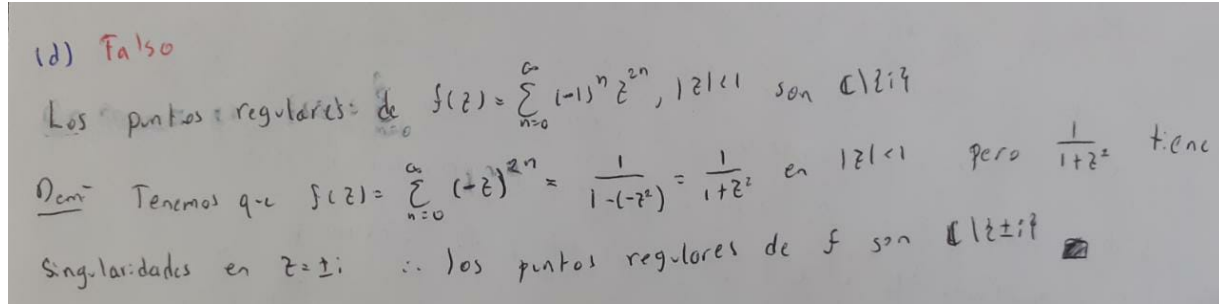 (d) Falso
Los puntos regulares de f(z) = ∑_{n=0}^{∞} (-1)^n z^{2n}, |z|<1 son ℂ\{i}
Dem Tenemos que f(z) = ∑_{n=0}^{∞} (-z)^{2n} = 1/(1-(-z²)) = 1/(1+z²) en |z|<1 pero 1/(1+z²) tiene
Singularidades en z=±i ∴ los puntos regulares de f son ℂ\{±i}